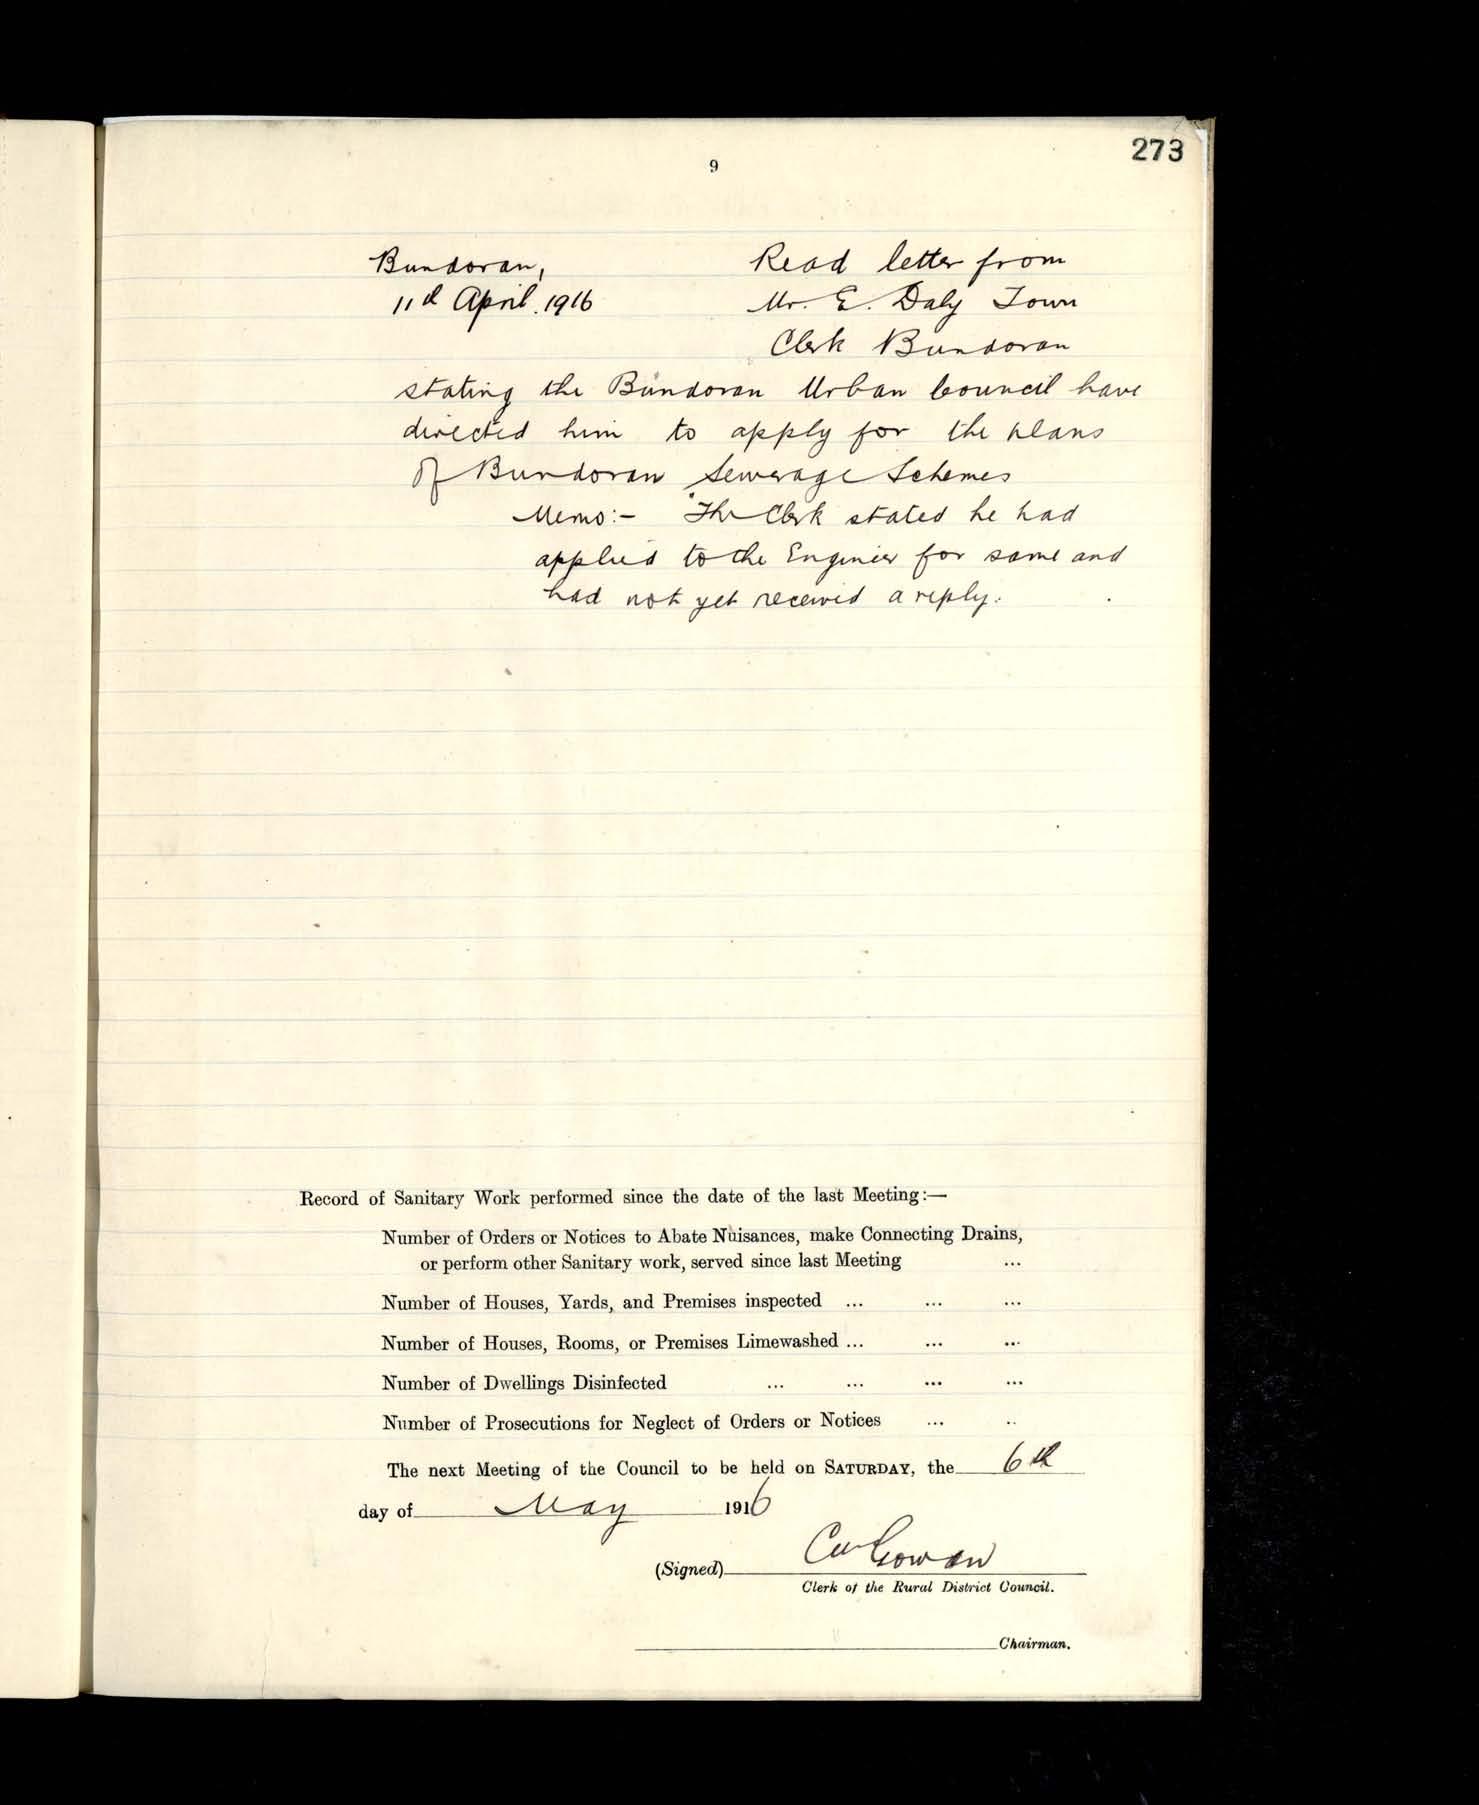 273
9
Bundoran, Read letter from
11th April. 1916 Mr. E. Daly Town
Clerk Bundoran
stating the Bundoran Urban Council have
directed him to apply for the plans
of Bundoran Sewerage Schemes
Memo:- The Clerk stated he had
applied to the Engineer for same and
had not yet received a reply.
Record of Sanitary Work performed since the date of the last Meeting:—
Number of Orders or Notices to Abate Nuisances, make Connecting Drains,
or perform other Sanitary work, served since last Meeting ...
Number of Houses, Yards, and Premises inspected ... ... ...
Number of Houses, Rooms, or Premises Limewashed ... ... ...
Number of Dwellings Disinfected ... ... ... ...
Number of Prosecutions for Neglect of Orders or Notices ... ..
The next Meeting of the Council to be held on SATURDAY, the 6th
day of May 1916
(Signed) Gowan
Clerk of the Rural District Council.
Chairman.